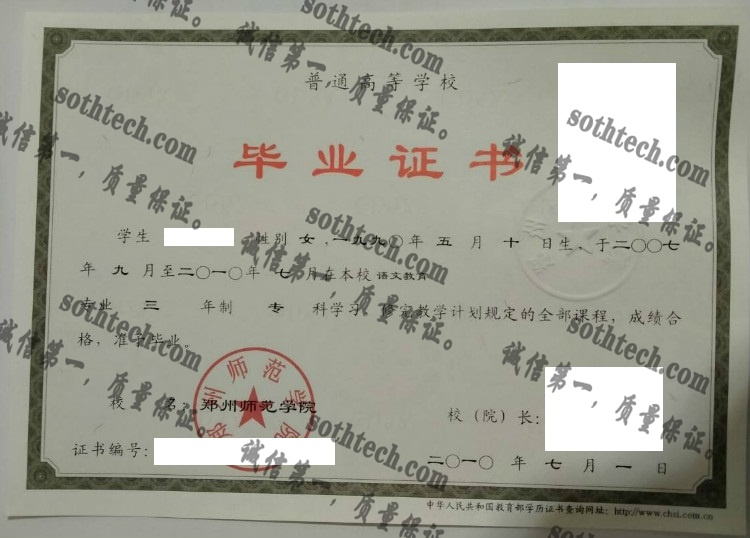 普通高等学校
毕业证书
学生 性别 女,一九九〇年 五 月 十 日生,于二〇〇七
年 九 月至二〇一〇年 七 月在本校 语文教育
专业 三 年制 专 科学习 修完教学计划规定的全部课程,成绩合
格,准予毕业。
校 名:郑州师范学院
校(院)长:
证书编号:
二〇一〇 年 七 月 一 日
中华人民共和国教育部学历证书查询网址:http://www.chsi.com.cn
郑州师范学院
sothtech.com
诚信第一,质量保证。
sothtech.com
诚信第一,质量保证。
sothtech.com
诚信第一,质量保证。
sothtech.com
诚信第一,质量保证。
sothtech.com
诚信第一,质量保证。
sothtech.com
诚信第一,质量保证。
sothtech.com
诚信第一,质量保证。
sothtech.com
诚信第一,质量保证。
sothtech.com
诚信第一,质量保证。